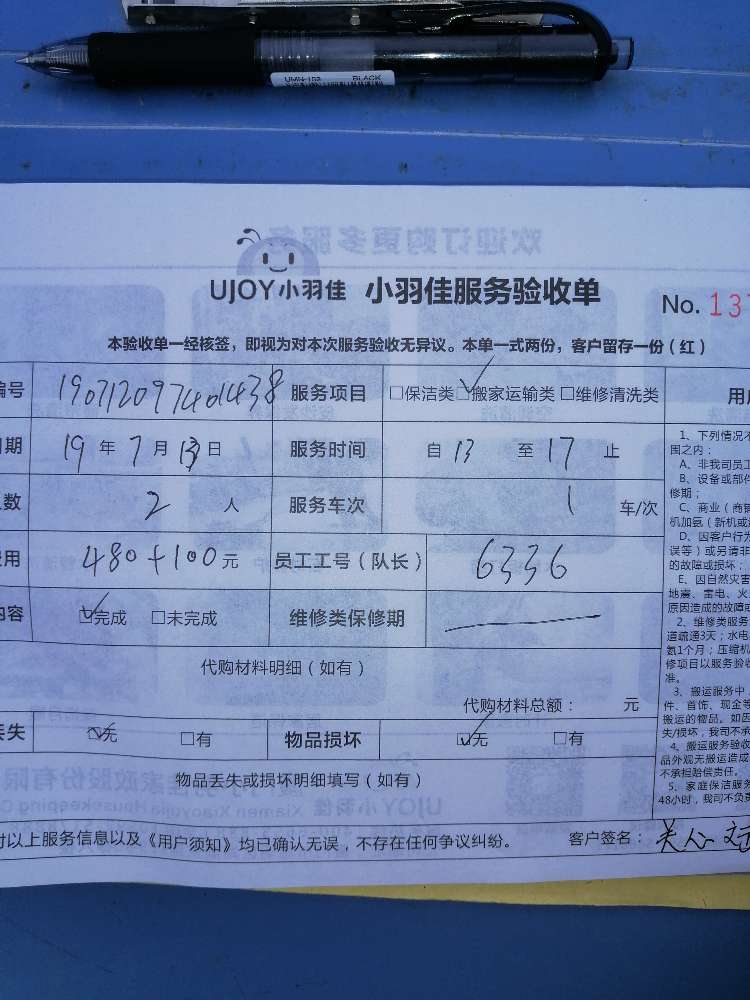 UMN-152 BLACK
欢迎订购更多服务
UJOY小羽佳 小羽佳服务验收单 No. 137
本验收单一经核签，即视为对本次服务验收无异议。本单一式两份，客户留存一份（红）
编号 190712097401438 服务项目 □保洁类 ☑搬家运输类 □维修清洗类
日期 19 年 7 月 13 日 服务时间 自 13 至 17 止
数 2 人 服务车次 1 车/次
用 480+100 元 员工工号（队长） 6336
内容 ☑完成 □未完成 维修类保修期
代购材料明细（如有）
代购材料总额： 元
丢失 ☑无 □有 物品损坏 ☑无 □有
物品丢失或损坏明细填写（如有）
对以上服务信息以及《用户须知》均已确认无误，不存在任何争议纠纷。 客户签名：
用户
1、下列情况不
围之内：
A、非我司员工
B、设备或部件
修期；
C、商业（商铺
机加氨（新机或
D、因客户行为
误等）或另请非
的故障或损坏；
E、因自然灾害
地震、雷电、火
原因造成的故障或
2、维修类服务
道疏通3天；水电
氨1个月；压缩机
修项目以服务验收
准。
3、搬运服务中
件、首饰、现金等
搬运的物品。如因
失/损坏，我司不承
4、搬运服务验收
品外观无搬运造成
不承担赔偿责任。
5、家庭保洁服务
48小时，我司不负责